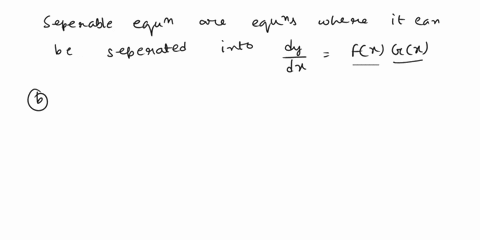 Seperable equn are equns where it can
be seperated into dy/dx = F(x) G(x)
b